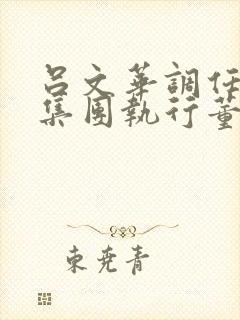 呂文華調任
集團執行董
東堯青